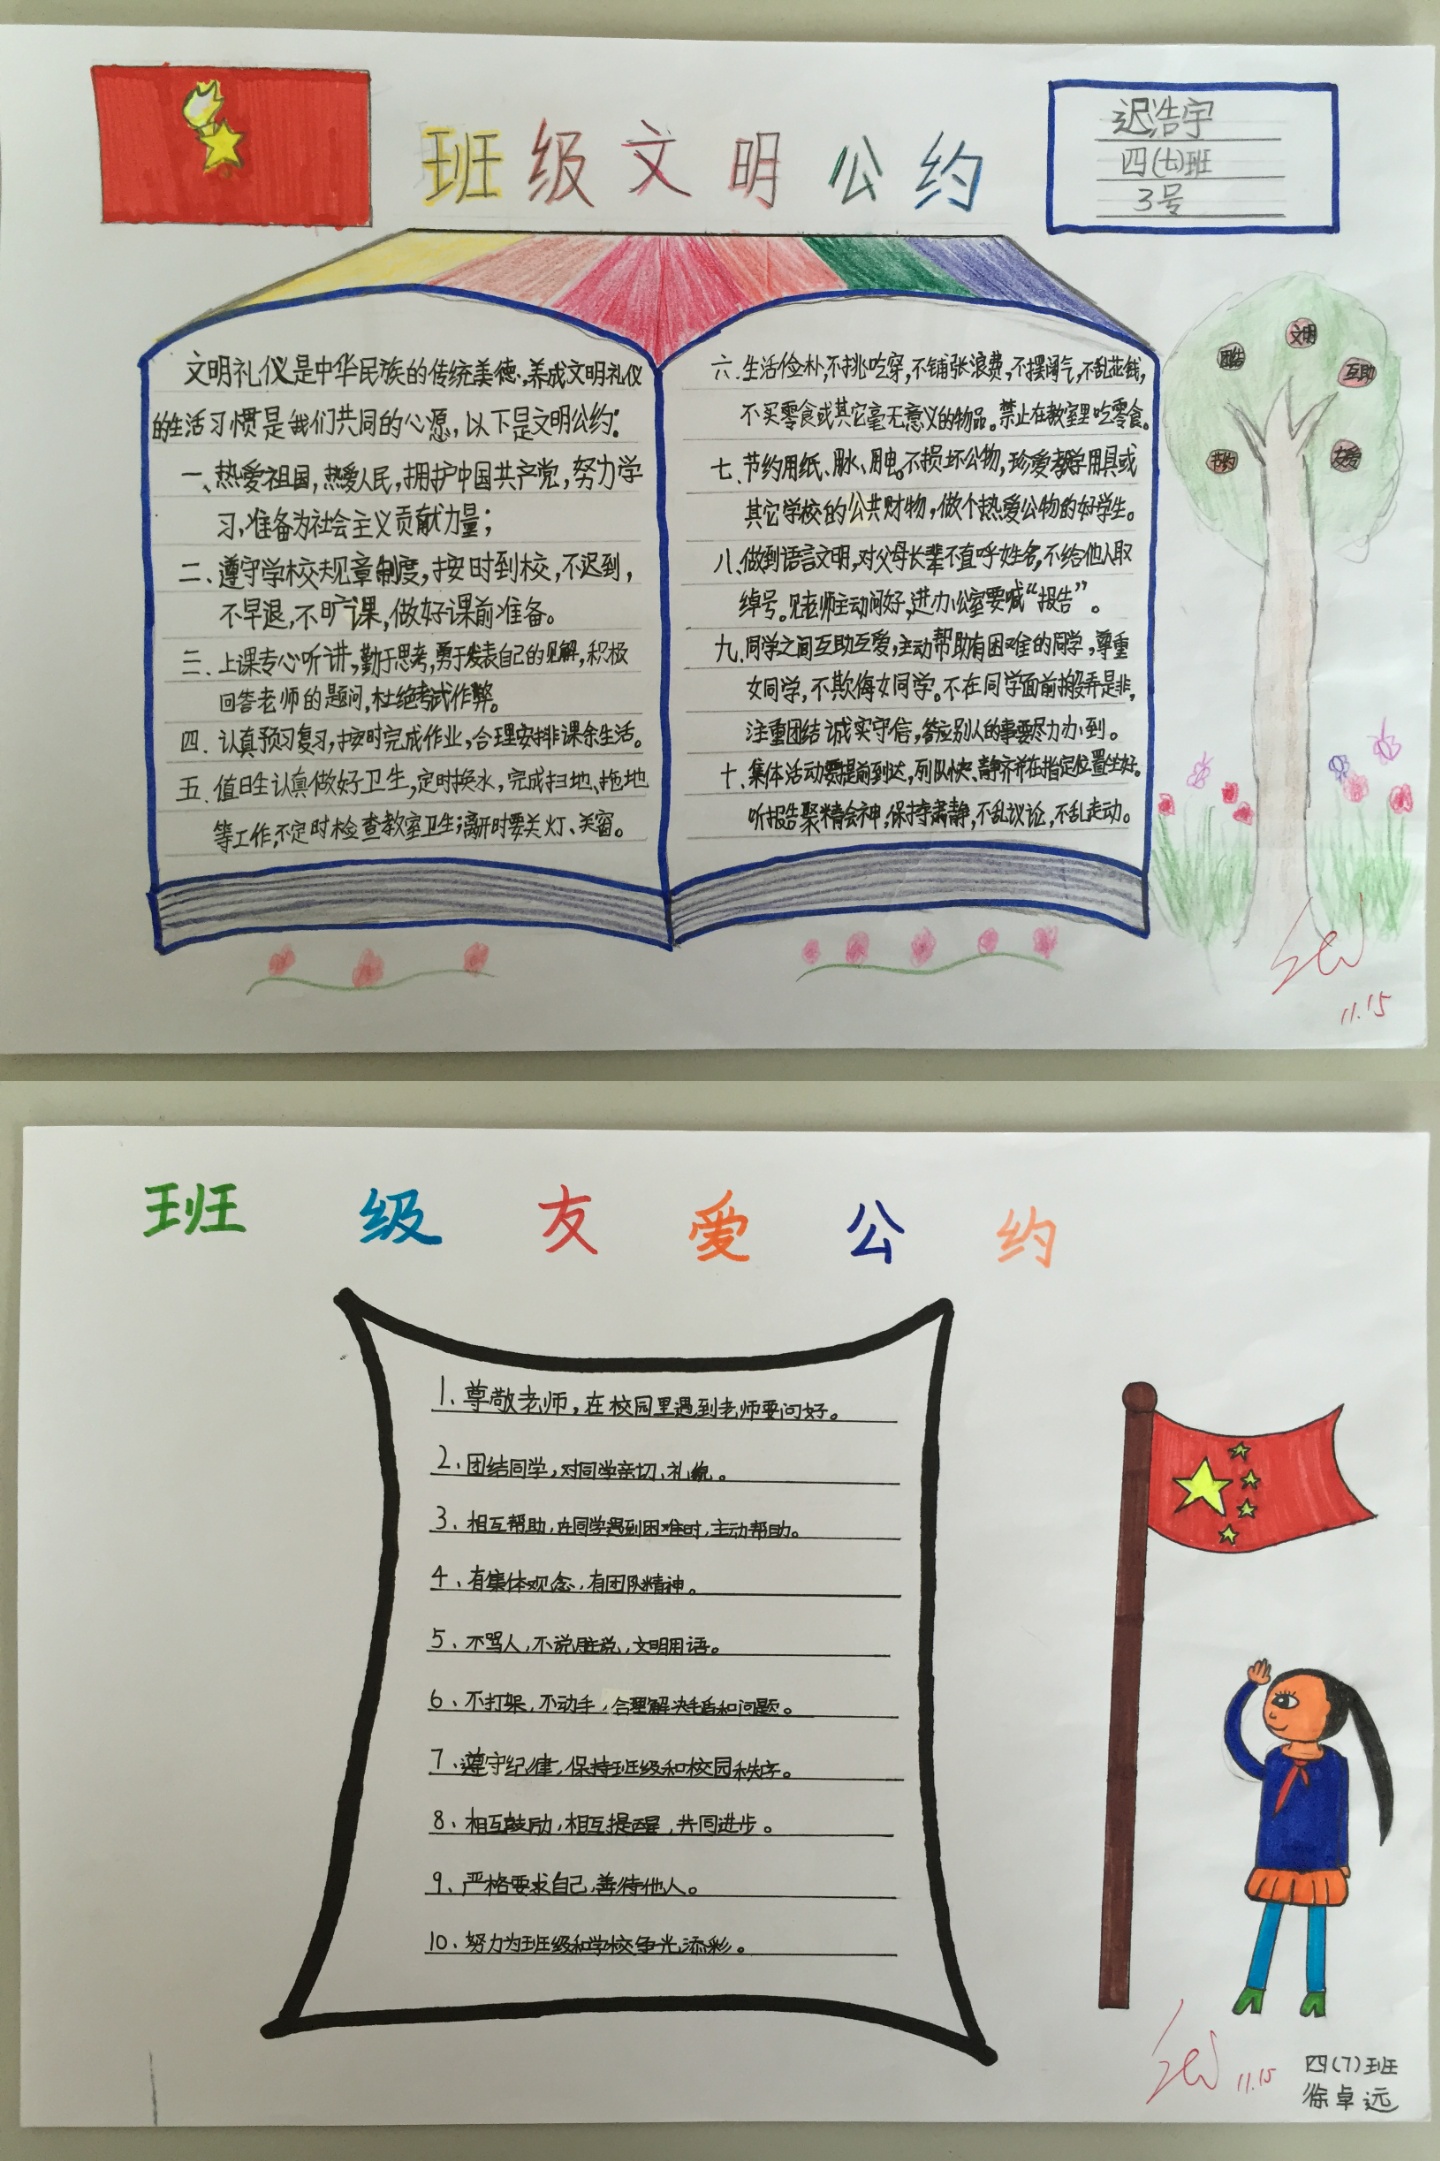 班级文明公约
迟浩宇
四(七)班
3号
文明礼仪是中华民族的传统美德,养成文明礼仪
的生活习惯是我们共同的心愿,以下是文明公约:
一、热爱祖国,热爱人民,拥护中国共产党,努力学
习,准备为社会主义贡献力量;
二、遵守学校规章制度,按时到校,不迟到,
不早退,不旷课,做好课前准备。
三、上课专心听讲,勤于思考,勇于发表自己的见解,积极
回答老师的题问,杜绝考试作弊。
四、认真预习复习,按时完成作业,合理安排课余生活。
五、值日生认真做好卫生,定时换水,完成扫地、拖地
等工作,不定时检查教室卫生,离开时要关灯、关窗。
六、生活俭朴,不挑吃穿,不铺张浪费,不摆阔气,不乱花钱,
不买零食或其它毫无意义的物品。禁止在教室里吃零食。
七、节约用纸、用水、用电。不损坏公物,珍爱教学用具或
其它学校的公共财物,做个热爱公物的好学生。
八、做到语言文明,对父母长辈不直呼姓名,不给他人取
绰号。见老师主动问好,进办公室要喊“报告”。
九、同学之间互助互爱,主动帮助有困难的同学,尊重
女同学,不欺侮女同学。不在同学面前搬弄是非,
注重团结诚实守信,答应别人的事要尽力办到。
十、集体活动要提前到达,列队快、静、齐,并在指定位置坐好。
听报告聚精会神,保持肃静,不乱议论,不乱走动。
文明
团结
互助
节约
友爱
11.15
班级友爱公约
1、尊敬老师,在校园里遇到老师要问好。
2、团结同学,对同学亲切、礼貌。
3、相互帮助,在同学遇到困难时,主动帮助。
4、有集体观念,有团队精神。
5、不骂人,不说脏说,文明用语。
6、不打架,不动手,合理解决矛盾和问题。
7、遵守纪律,保持班级和校园秩序。
8、相互鼓励,相互提醒,共同进步。
9、严格要求自己,善待他人。
10、努力为班级和学校争光添彩。
11.15
四(7)班
徐卓远